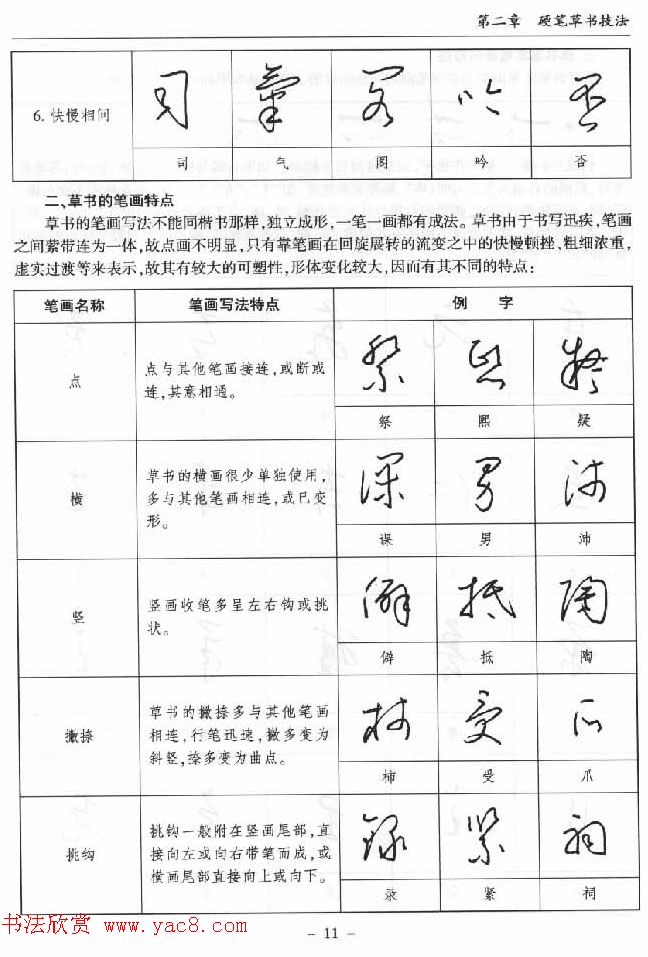 第二章 硬笔草书技法
6. 快慢相间
司 气 图 吟 否
二、草书的笔画特点
草书的笔画写法不能同楷书那样,独立成形,一笔一画都有成法。草书由于书写迅疾,笔画
之间萦带连为一体,故点画不明显,只有靠笔画在回旋展转的流变之中的快慢顿挫,粗细浓重,
虚实过渡等来表示,故其有较大的可塑性,形体变化较大,因而有其不同的特点:
笔画名称 笔画写法特点 例 字
点
点与其他笔画接连,或断或
连,其意相通。
祭 熙 疑
横
草书的横画很少单独使用,
多与其他笔画相连,或已变
形。
课 男 沛
竖
竖画收笔多呈左右钩或挑
状。
僻 抵 陶
撇捺
草书的撇捺多与其他笔画
相连,行笔迅速,撇多变为
斜竖,捺多变为曲点。
柿 受 爪
挑钩
挑钩一般附在竖画尾部,直
接向左或向右带笔而成,或
横画尾部直接向上或向下。
录 紧 祠
书法欣赏 www.yac8.com
- 11 -